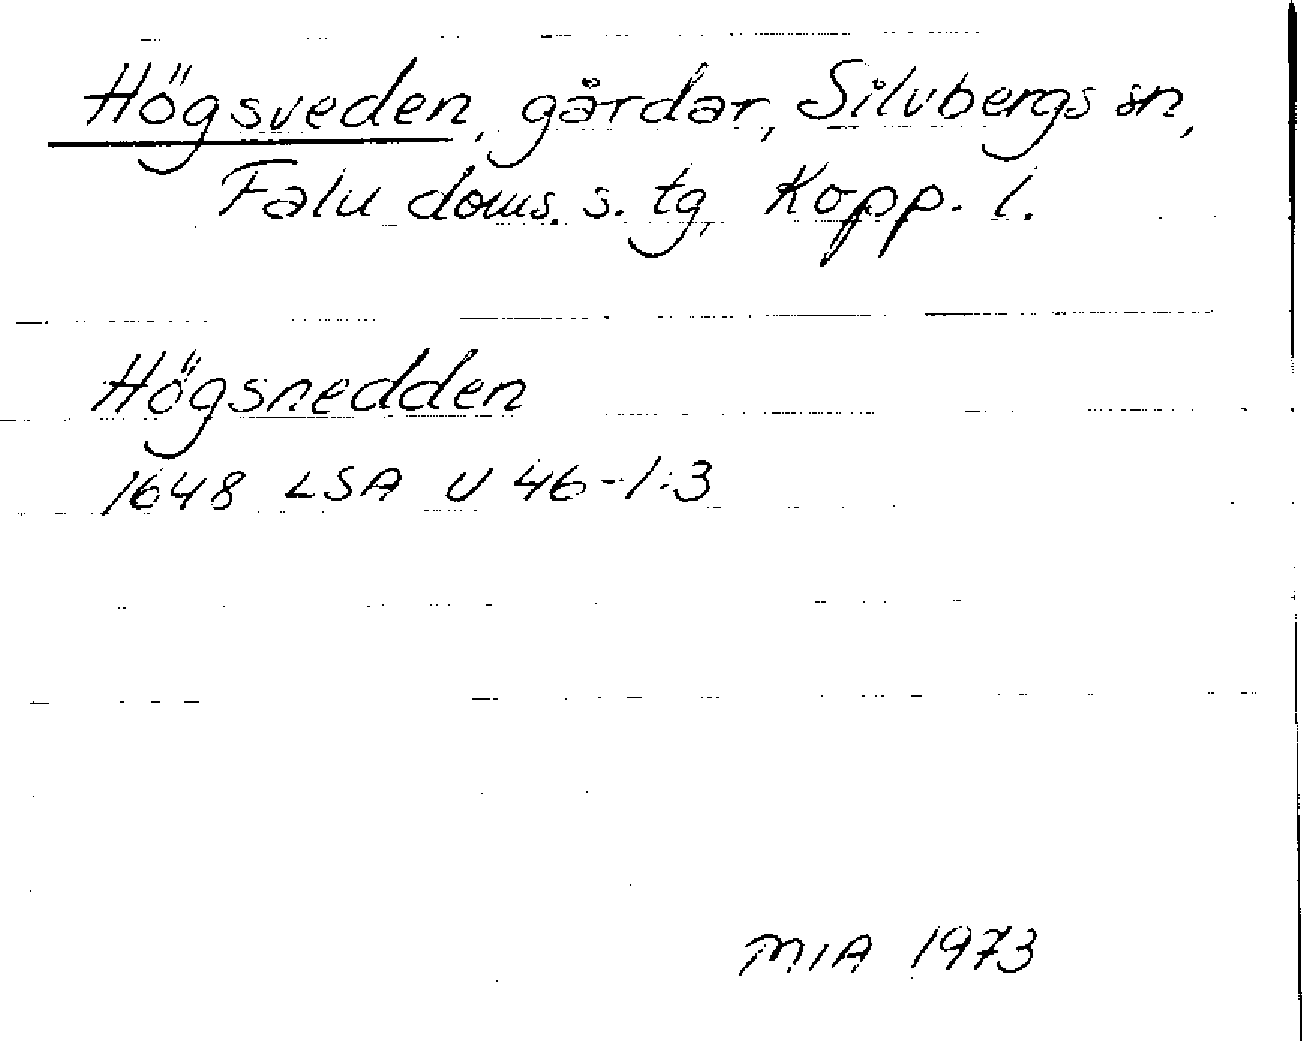 Högsveden, gårdar, Silvbergs sn,
Falu doms. s. tg, Kopp. l.
Högsnedden
1648 LSA U 46-1:3
MIA 1973